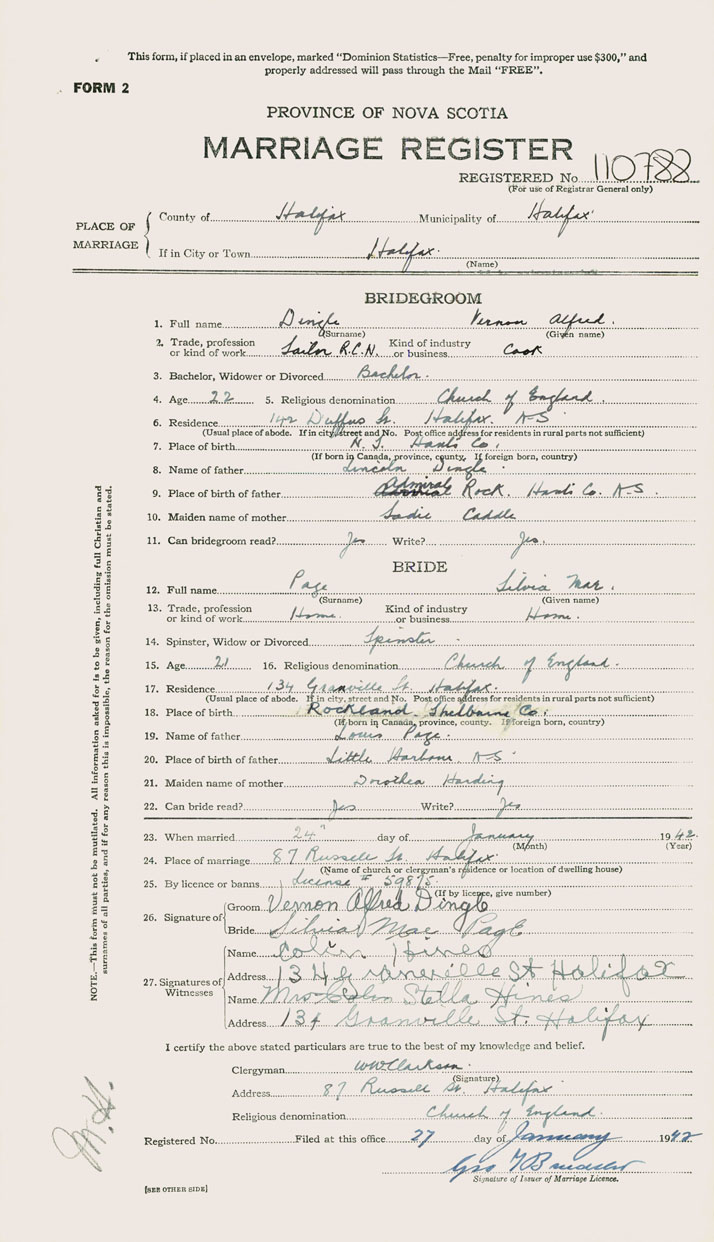 This form, if placed in an envelope, marked "Dominion Statistics—Free, penalty for improper use $300," and
properly addressed will pass through the Mail "FREE".
FORM 2
PROVINCE OF NOVA SCOTIA
MARRIAGE REGISTER
REGISTERED No. 110788
(For use of Registrar General only)
PLACE OF MARRIAGE
County of Halifax Municipality of Halifax
If in City or Town Halifax.
(Name)
BRIDEGROOM
1. Full name Dingle Vernon Alfred.
(Surname) (Given name)
2. Trade, profession or kind of work Sailor R.C.N. Kind of industry or business Cook
3. Bachelor, Widower or Divorced Bachelor.
4. Age 22 5. Religious denomination Church of England.
6. Residence 192 Duffus St. Halifax. N-S
(Usual place of abode. If in city, street and No. Post office address for residents in rural parts not sufficient)
7. Place of birth N. S. Hants Co.
(If born in Canada, province, county. If foreign born, country)
8. Name of father Lincoln Dingle.
9. Place of birth of father Admiral Rock. Hants Co. N-S.
10. Maiden name of mother Sadie Caddle
11. Can bridegroom read? Yes Write? Yes.
BRIDE
12. Full name Page Silvia Mae.
(Surname) (Given name)
13. Trade, profession or kind of work Home. Kind of industry or business Home.
14. Spinster, Widow or Divorced Spinster.
15. Age 21 16. Religious denomination Church of England.
17. Residence 134 Granville St. Halifax.
(Usual place of abode. If in city, street and No. Post office address for residents in rural parts not sufficient)
18. Place of birth Rockland Shelburne Co.
(If born in Canada, province, county. If foreign born, country)
19. Name of father Louis Page.
20. Place of birth of father Little Harbour N-S
21. Maiden name of mother Dorothea Harding
22. Can bride read? Yes Write? Yes
23. When married 24" day of January 1942
(Month) (Year)
24. Place of marriage 87 Russell St. Halifax.
(Name of church or clergyman's residence or location of dwelling house)
25. By licence or banns License # 59875.
(If by licence, give number)
26. Signature of
Groom Vernon Alfred Dingle
Bride Silvia Mae Page
27. Signatures of Witnesses
Name Colin Hines
Address 134 Granville St Halifax
Name Mrs Colin Stella Hines
Address 134 Granville St. Halifax
I certify the above stated particulars are true to the best of my knowledge and belief.
Clergyman WW Clarkson.
(Signature)
Address 87 Russell St. Halifax
Religious denomination Church of England.
Registered No. Filed at this office 27 day of January 1942
Geo
Signature of Issuer of Marriage Licence.
[SEE OTHER SIDE]
NOTE.—This form must not be mutilated. All information asked for is to be given, including full Christian and
surnames of all parties, and if for any reason this is impossible, the reason for the omission must be stated.
M.H.